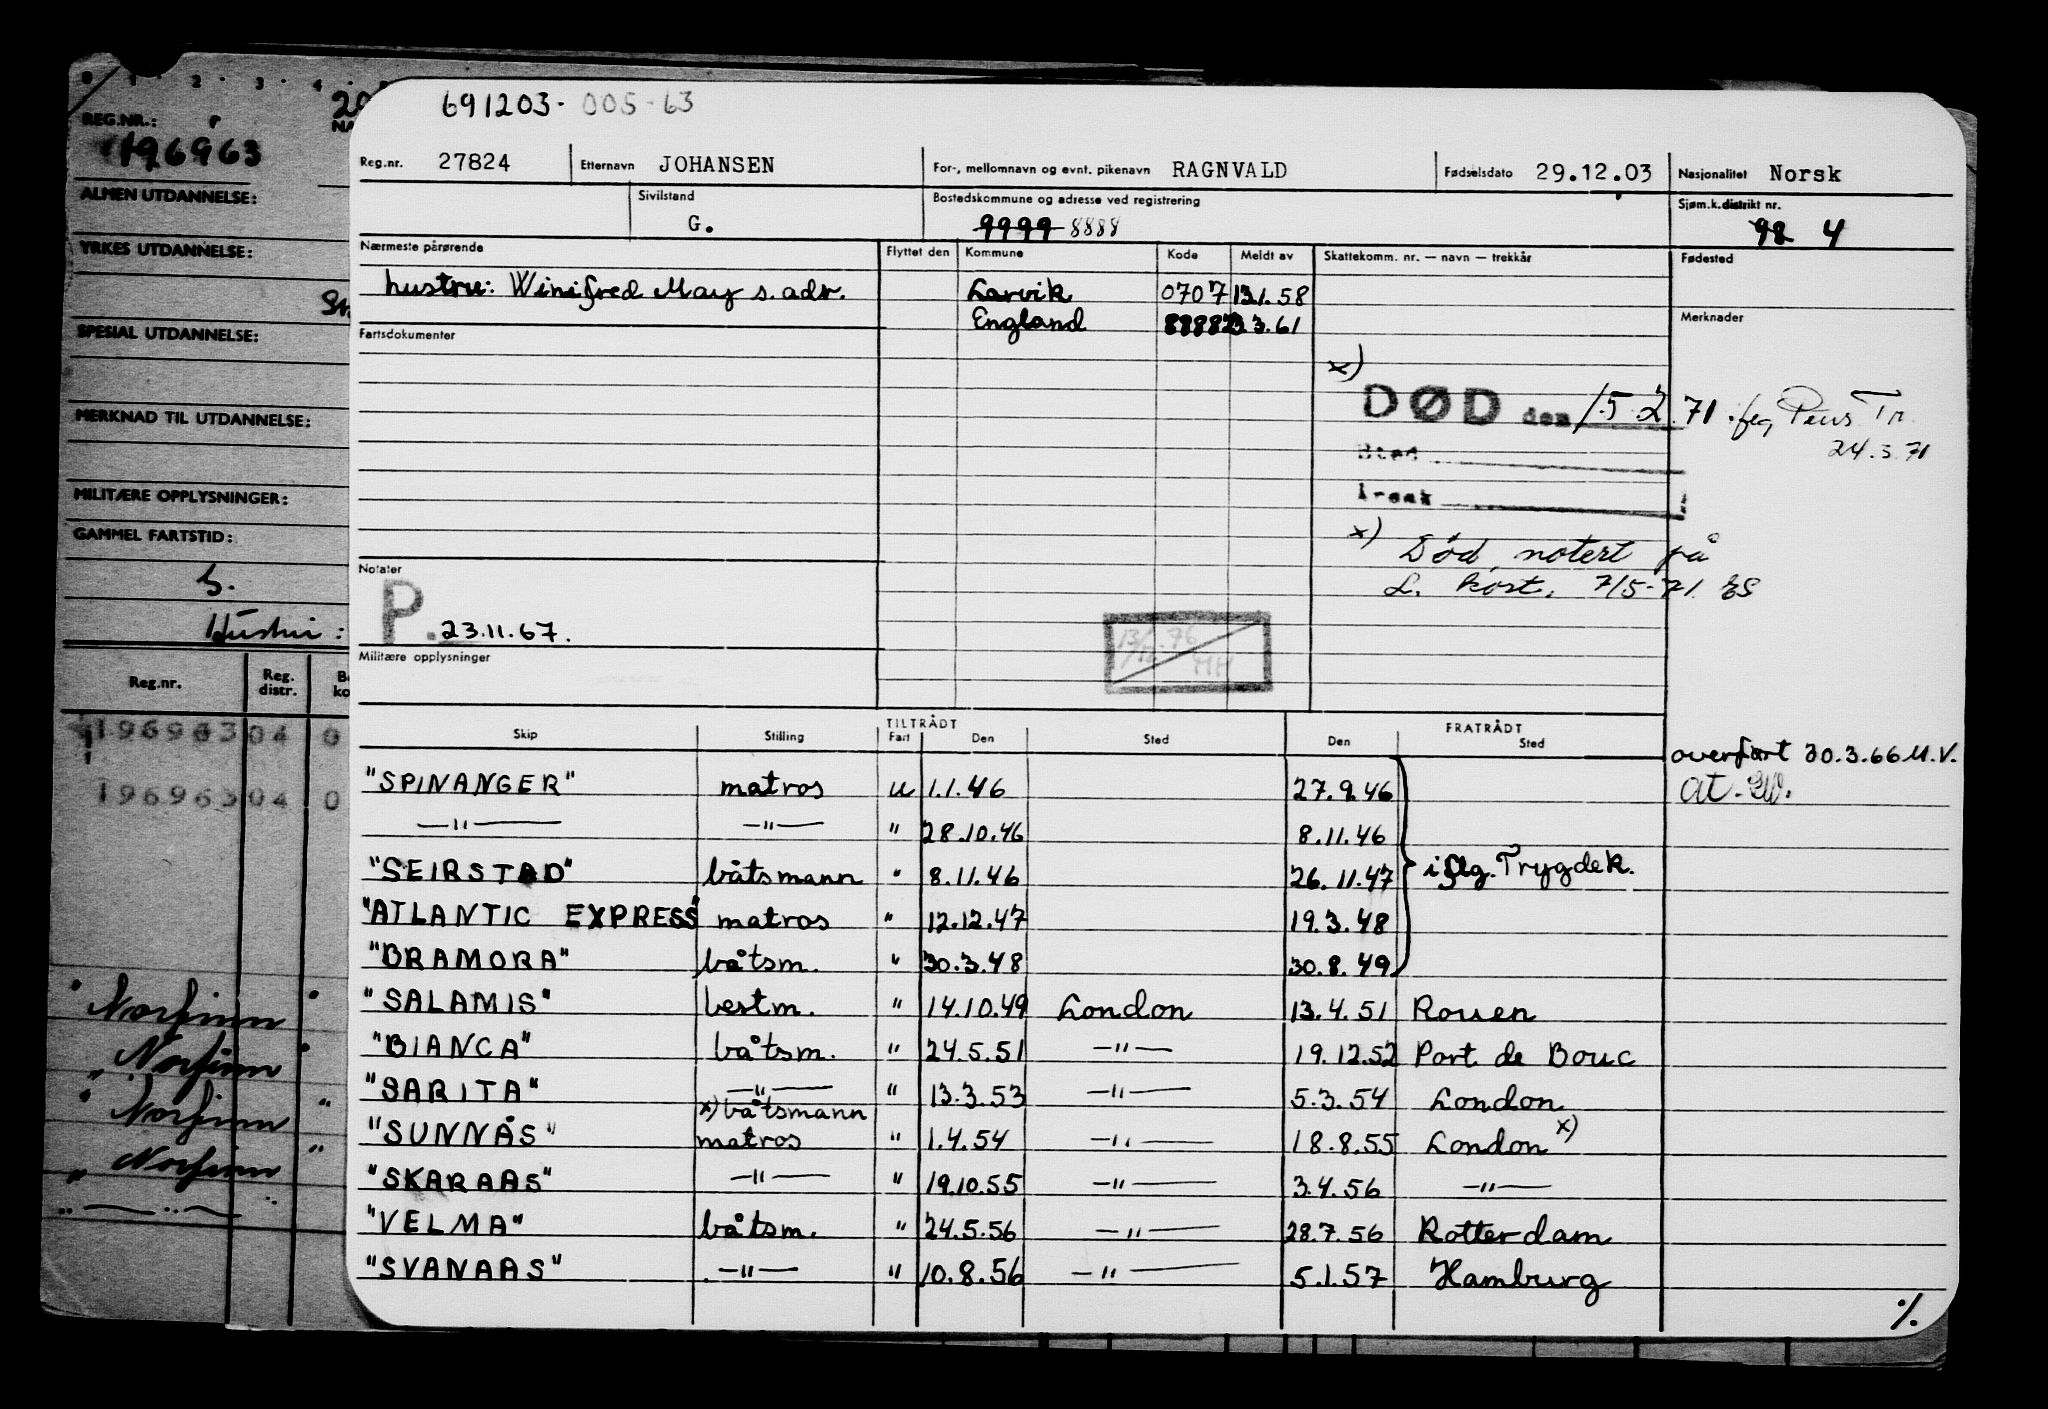 691203-005-63
Reg.nr. 27824 Etternavn JOHANSEN For-, mellomnavn og evnt. pikenavn RAGNVALD Fødselsdato 29.12.03 Nasjonalitet Norsk
Sivilstand G. Bostedskommune og adresse ved registrering 9999 8888 Sjøm.k.distrikt nr. 98 4
Nærmeste pårørende Flyttet den Kommune Kode Meldt av Skattekomm. nr. — navn — trekkår Fødested
hustru: Winifred May s. adr. Larvik 0707 13.1.58
England 8888 23.3.61 Merknader
Fartsdokumenter
x)
DØD den 15.2.71. Pens Tr.
24.3.71
Sted
Årsak
x) Død notert på
L. kort. 7/5-71 ES
Notater
P. 23.11.67.
13/12-76
MH
Militære opplysninger
TILTRÅDT FRATRÅDT
Skip Stilling Fart Den Sted Den Sted
overført 30.3.66 M.V.
"SPINANGER" matros u 1.1.46 27.9.46 at.
—"— —"— " 28.10.46 8.11.46
"SEIRSTAD" båtsmann " 8.11.46 26.11.47 iflg. Trygdek.
"ATLANTIC EXPRESS" matros " 12.12.47 19.3.48
"BRAMORA" båtsm. " 30.3.48 30.8.49
"SALAMIS" bestm. " 14.10.49 London 13.4.51 Rouen
"BIANCA" båtsm. " 24.5.51 —"— 19.12.52 Port de Bouc
"SARITA" —"— " 13.3.53 —"— 5.3.54 London
x) båtsmann
"SUNNÅS" matros " 1.4.54 —"— 18.8.55 London x)
"SKARAAS" —"— " 19.10.55 —"— 3.4.56 —"—
"VELMA" båtsm. " 24.5.56 —"— 28.7.56 Rotterdam
"SVANAAS" —"— " 10.8.56 —"— 5.1.57 Hamburg
./.
0 1 2 3 4
REG.NR.: 20
196963
ALMEN UTDANNELSE:
YRKES UTDANNELSE:
SPESIAL UTDANNELSE:
MERKNAD TIL UTDANNELSE:
MILITÆRE OPPLYSNINGER:
GAMMEL FARTSTID:
G.
Hustru:
Reg.nr. Reg. distr.
196963 04 0
196963 04 0
Norfinn
" Norfinn "
" Norfinn "
" Norfinn "